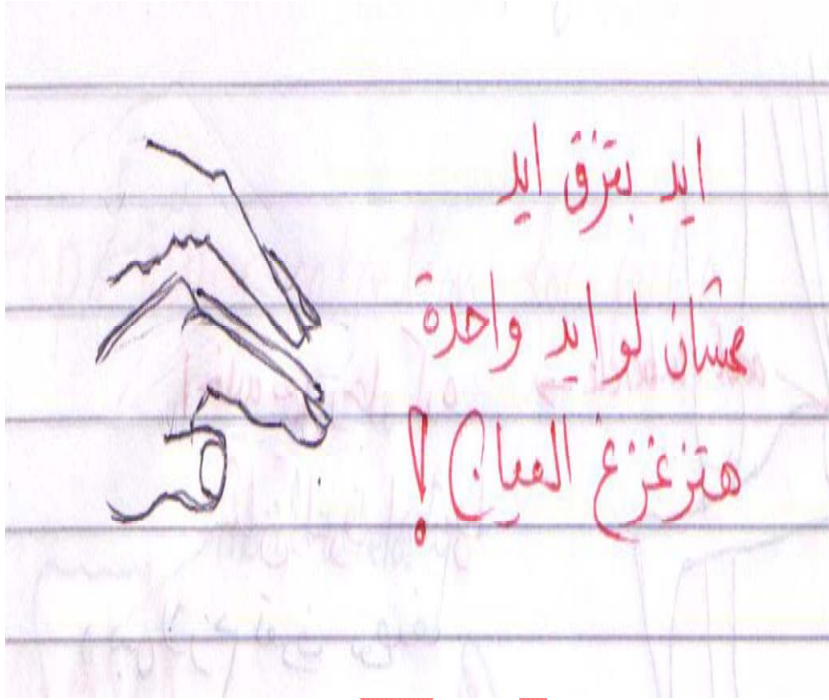 ايد بتزق ايد
عشان لو ايد واحدة
هتزغزغ العيان!